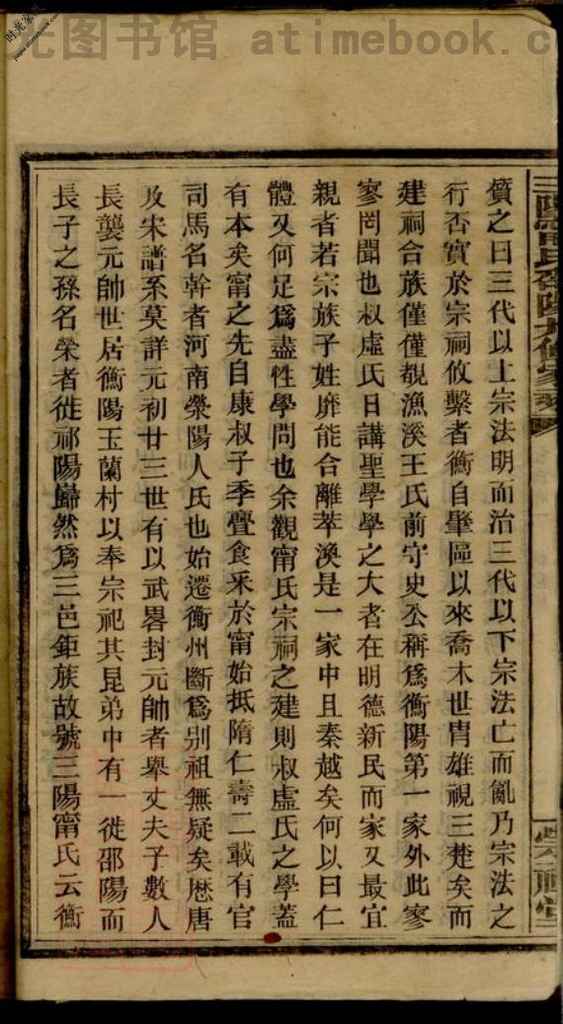 光图书馆 atimebook.c
三陽甯氏邵陽九修家
償之曰三代以上宗法明而治三代以下宗法亡而亂乃宗法之
行否實於宗祠攸繫者衡自肇區以來喬木世胄雄視三楚矣而
建祠合族僅僅覩漁溪王氏前守史公稱為衡陽第一家外此寥
寥罔聞也叔虛氏日講聖學學之大者在明德新民而家又最宜
親者若宗族子姓靡能合離萃渙是一家中且秦越矣何以曰仁
體又何足為盡性學問也余觀甯氏宗祠之建則叔虛氏之學蓋
有本矣甯之先自康叔子季亹食釆於甯始抵隋仁壽二載有官
司馬名幹者河南滎陽人氏也始遷衡州斷為别祖無疑矣歴唐
及宋譜系莫詳元初廿三世有以武畧封元帥者舉丈夫子數人
長襲元帥世居衡陽玉蘭村以奉宗祀其昆弟中有一徙邵陽而
長子之孫名榮者徙祁陽巋然為三邑鉅族故號三陽甯氏云衡